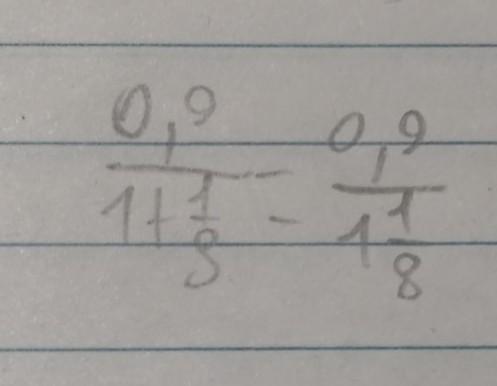 0,9/(1+1/8) = 0,9/(1 1/8)